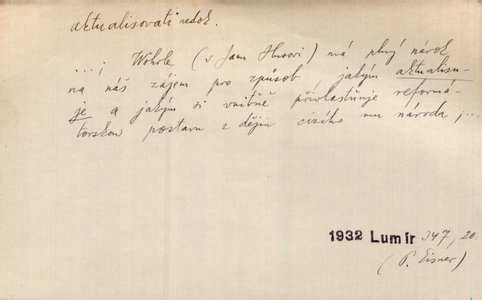 aktualisovati nedok.
...; Wöhrle (v Janu Husovi) má plný nárok
na náš zájem pro způsob, jakým aktualisu-
je a jakým si vnitřně přivlastňuje reformá-
torskou postavu z dějin cizího mu národa;...
1932 Lumír 347, 20.
(P. Eisner)